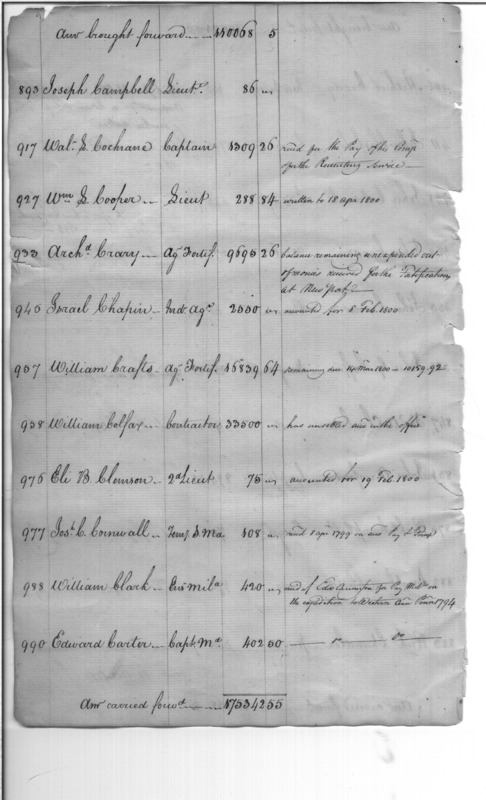 Amt brought forward 110068 5
893 Joseph Campbell Lieutt. 86 "
917 Walr. S. Cochrane Captain 1309 26 recd for the Pay of his Comp
for the Recruiting Service
927 Wm S. Cooper Lieut 288 84 written to 18 apr 1800
933 Archd. Crary Agt Fortif. 9695 26 balance remaining unexpended out
of monies received for the Fortifications
at New Port
945 Israel Chapin Indn Agt. 2550 " accounted for 8 Feb. 1800
957 William Crafts Agt Fortif. 16839 64 remaining due 14 Mar 1800 10159.92
958 William Colfax Contractor 33500 " has unsettled accts in the office
976 Eli B. Clemson 2d Lieut 75 " accounted for 19 Feb 1800
977 Jost. C. Cornwall 108 " 1799 Pay
988 William Clark Mila 420 " recd of for Pay Mila. on
the expedition to Western 1794
990 Edward Carter Capt. Ma. 402 50 Do Do
Amt carried forwd. 175342 55